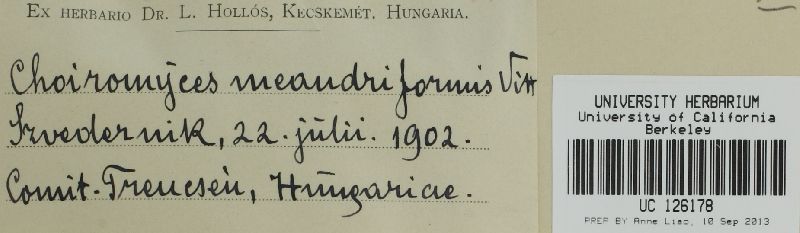 Ex herbario Dr. L. Hollós, Kecskemét. Hungaria.
Choiromyces meandriformis Vitt
Szvedernik, 22. julii. 1902.
Comit. Trencsén, Hungariae.
UNIVERSITY HERBARIUM
University of California
Berkeley
UC 126178
PREP BY Anne Liao, 10 Sep 2013